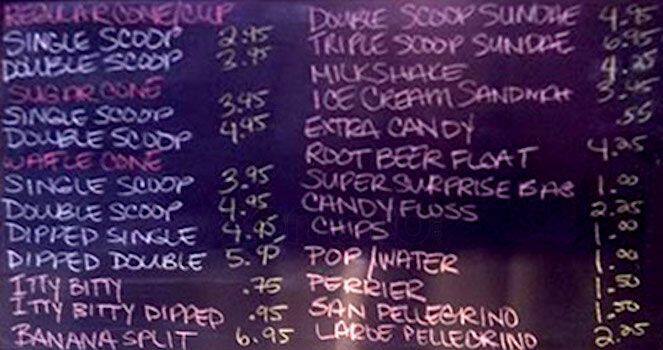 REGULAR CONE/CUP
SINGLE SCOOP 2.95
DOUBLE SCOOP 3.95
SUGAR CONE
SINGLE SCOOP 3.95
DOUBLE SCOOP 4.95
WAFFLE CONE
SINGLE SCOOP 3.95
DOUBLE SCOOP 4.95
DIPPED SINGLE 4.95
DIPPED DOUBLE 5.95
ITTY BITTY .75
ITTY BITTY DIPPED .95
BANANA SPLIT 6.95
DOUBLE SCOOP SUNDAE 4.95
TRIPLE SCOOP SUNDAE 6.95
MILKSHAKE 4.25
ICE CREAM SANDWICH 3.95
EXTRA CANDY .55
ROOT BEER FLOAT 4.25
SUPER SURPRISE BAG 1.00
CANDY FLOSS 2.25
CHIPS 1.00
POP/WATER 1.00
PERRIER 1.50
SAN PELLEGRINO 1.50
LARGE PELLEGRINO 2.25